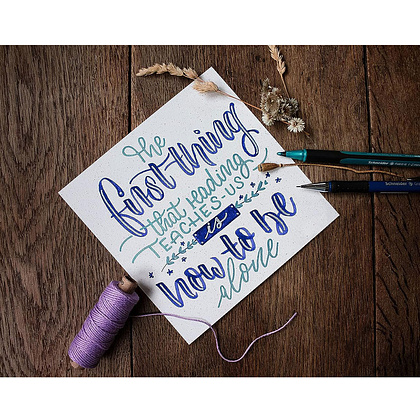 The
first thing
that reading
TEACHES US
is
how to be
alone
Schneider
Schneider